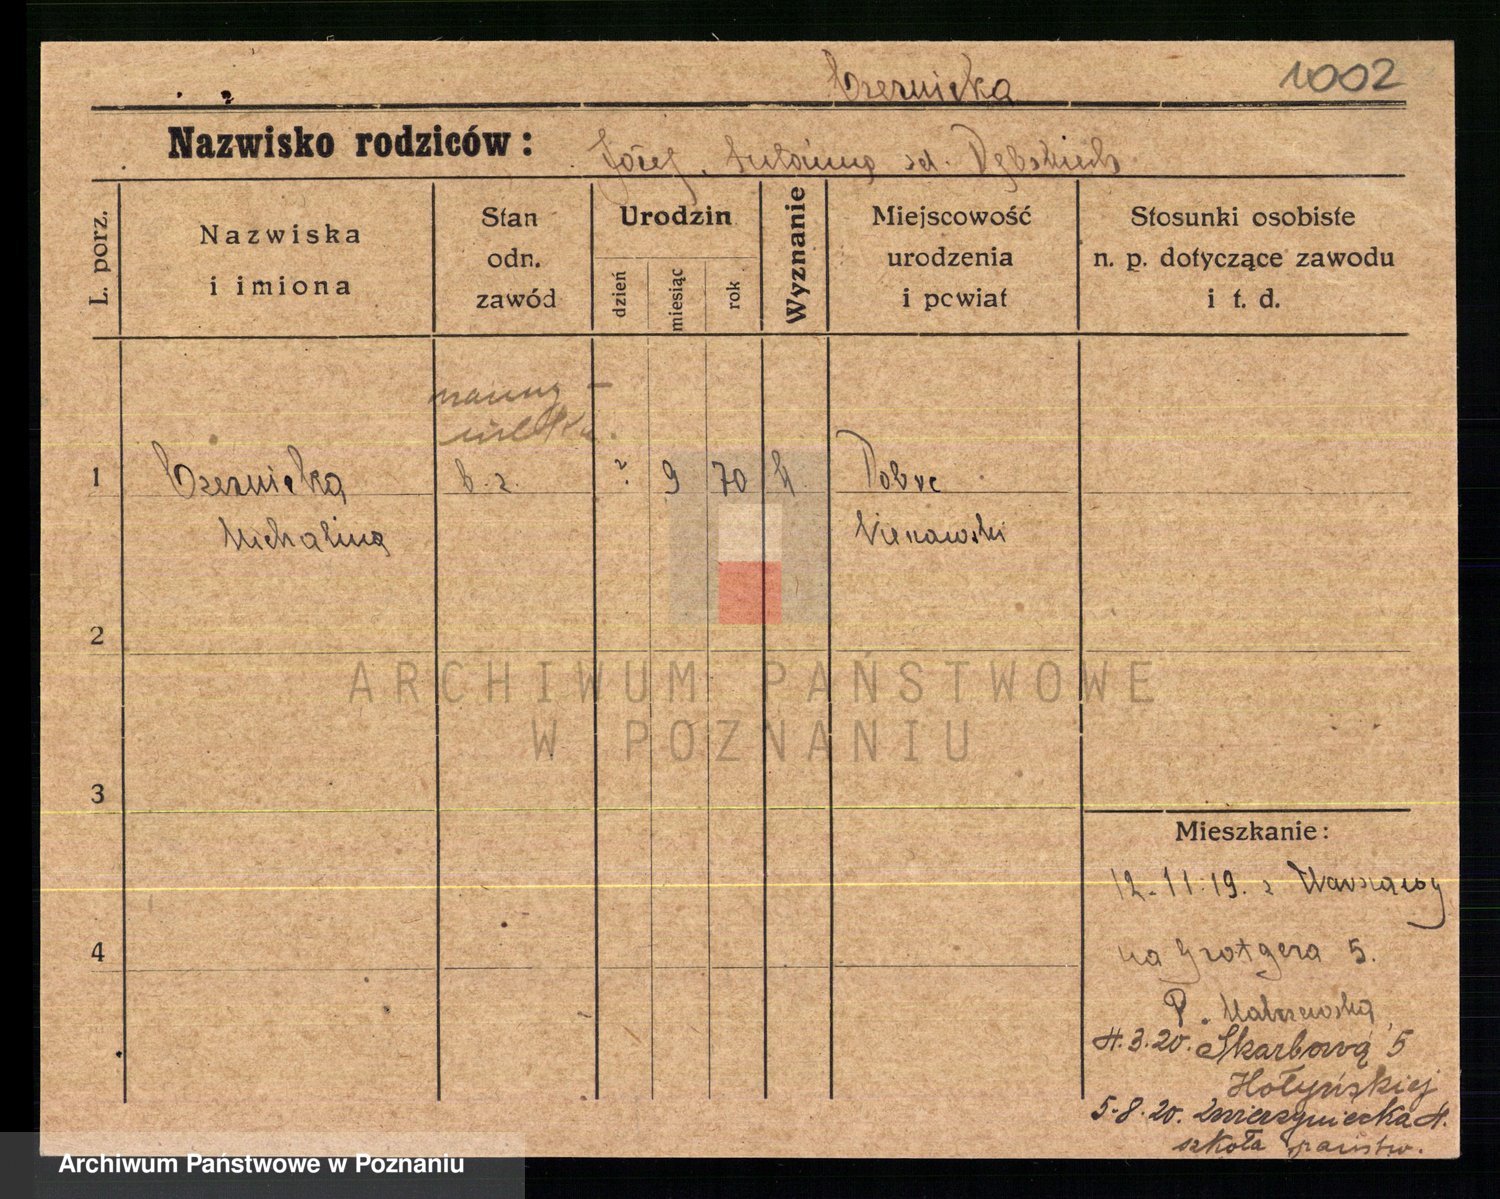 Czernicka 1002
Nazwisko rodziców: Józef, Antonina zd. Dębskich
L. porz.
Nazwiska
i imiona
Stan
odn.
zawód
Urodzin
dzień
miesiąc
rok
Wyznanie
Miejscowość
urodzenia
i powiat
Stosunki osobiste
n. p. dotyczące zawodu
i t. d.
1 Czernicka b. z. 2 9 70 k Dobre
Michalina Nieszawski
2
ARCHIWUM PAŃSTWOWE
W POZNANIU
3
Mieszkanie:
12.11.19. z Warszawy
4
na Grotgera 5.
P.
3.20. Skarbową 5
Hołyńskiej
5.8.20. Zwierzyniecka
szkoła państw.
Archiwum Państwowe w Poznaniu